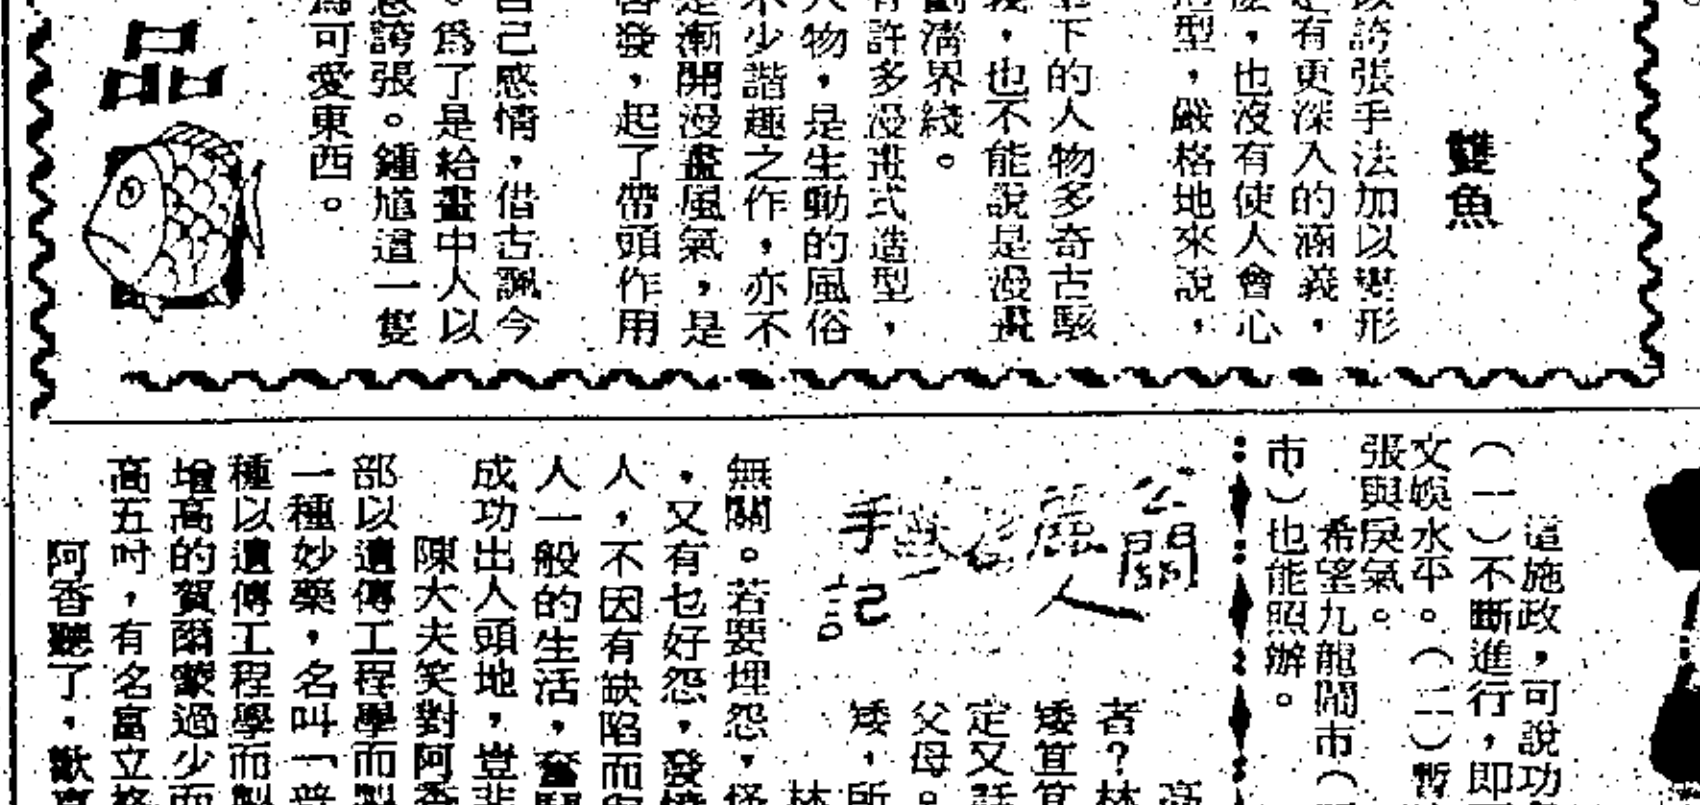 雙魚
以誇張手法加以變形
是有更深入的涵義，
麽，也沒有使人會心
型，嚴格地來說，
筆下的人物多奇古駭
義，也不能說是漫畫
劃清界綫。
有許多漫畫式造型，
人物，是生動的風俗
不少諧趣之作，亦不
是漸開漫畫風氣，是
啓發，起了帶頭作用
自己感情，借古諷今
。爲了是給畫中人以
誇張。鍾馗這一隻
爲可愛東西。
品
這施政，可說功
（一）不斷進行，即
文娛水平。（二）暫
張與戾氣。
希望九龍鬧市（
市）也能照辦。
公關
麗人
手記
高
者？林
矮宜宜
定又話
父母。
矮，所
林
無關。若要埋怨，怪
，又有乜好怨，發憤
人，不因有缺陷而
人一般的生活，奮
成功出人頭地，豈非
陳大夫笑對阿香
部以遺傳工程學而製
一種妙藥，名叫「
種以遺傳工程學而製
增高的賀爾蒙過少而
高五吋，有名富立
阿香聽了，歡喜